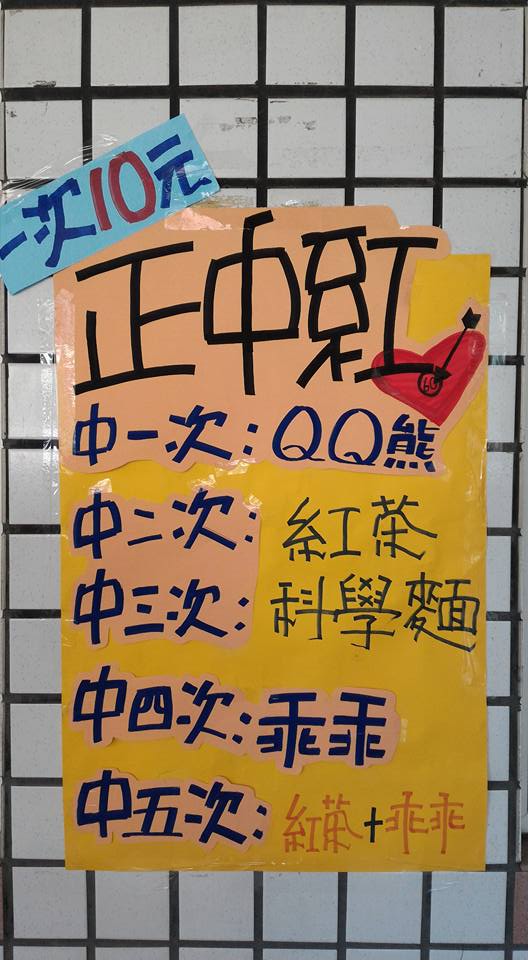 一次10元
正中紅
中一次:QQ熊
中二次:紅茶
中三次:科學麵
中四次:乖乖
中五次:紅茶+乖乖